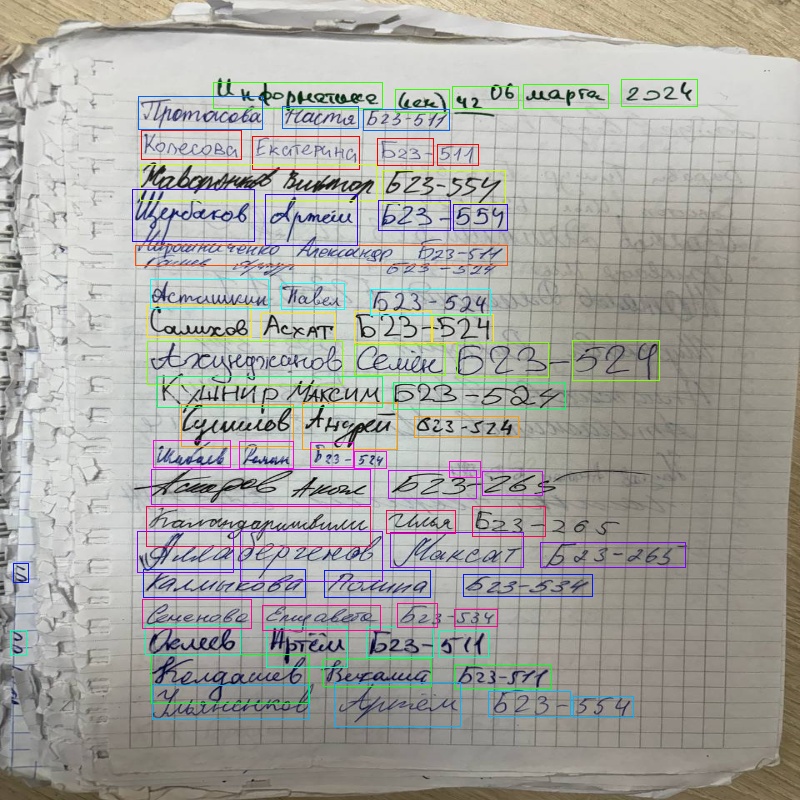 Информатика (лек) 42 06 марта 2024
Протасова Настя Б23-511
Колесова Екатерина Б23-511
Жаворонков Виктор Б23-554
Щербаков Артём Б23-554
Мирошниченко Александр Б23-511
Б23-524
Асташкин Павел Б23-524
Салихов Асхат Б23-524
Ахунджанов Семён Б23-524
Кушнир Максим Б23-524
Сушилов Андрей Б23-524
Шибаев Роман Б23-524
Аскаров Акмал Б23-265
Каландаришвили Илья Б23-265
Аллабергенов Максат Б23-265
Калмыкова Полина Б23-534
Семенова Елизавета Б23-534
Оклеев Артём Б23-511
Колдашев Б23-511
Ульяненков Артём Б23-554